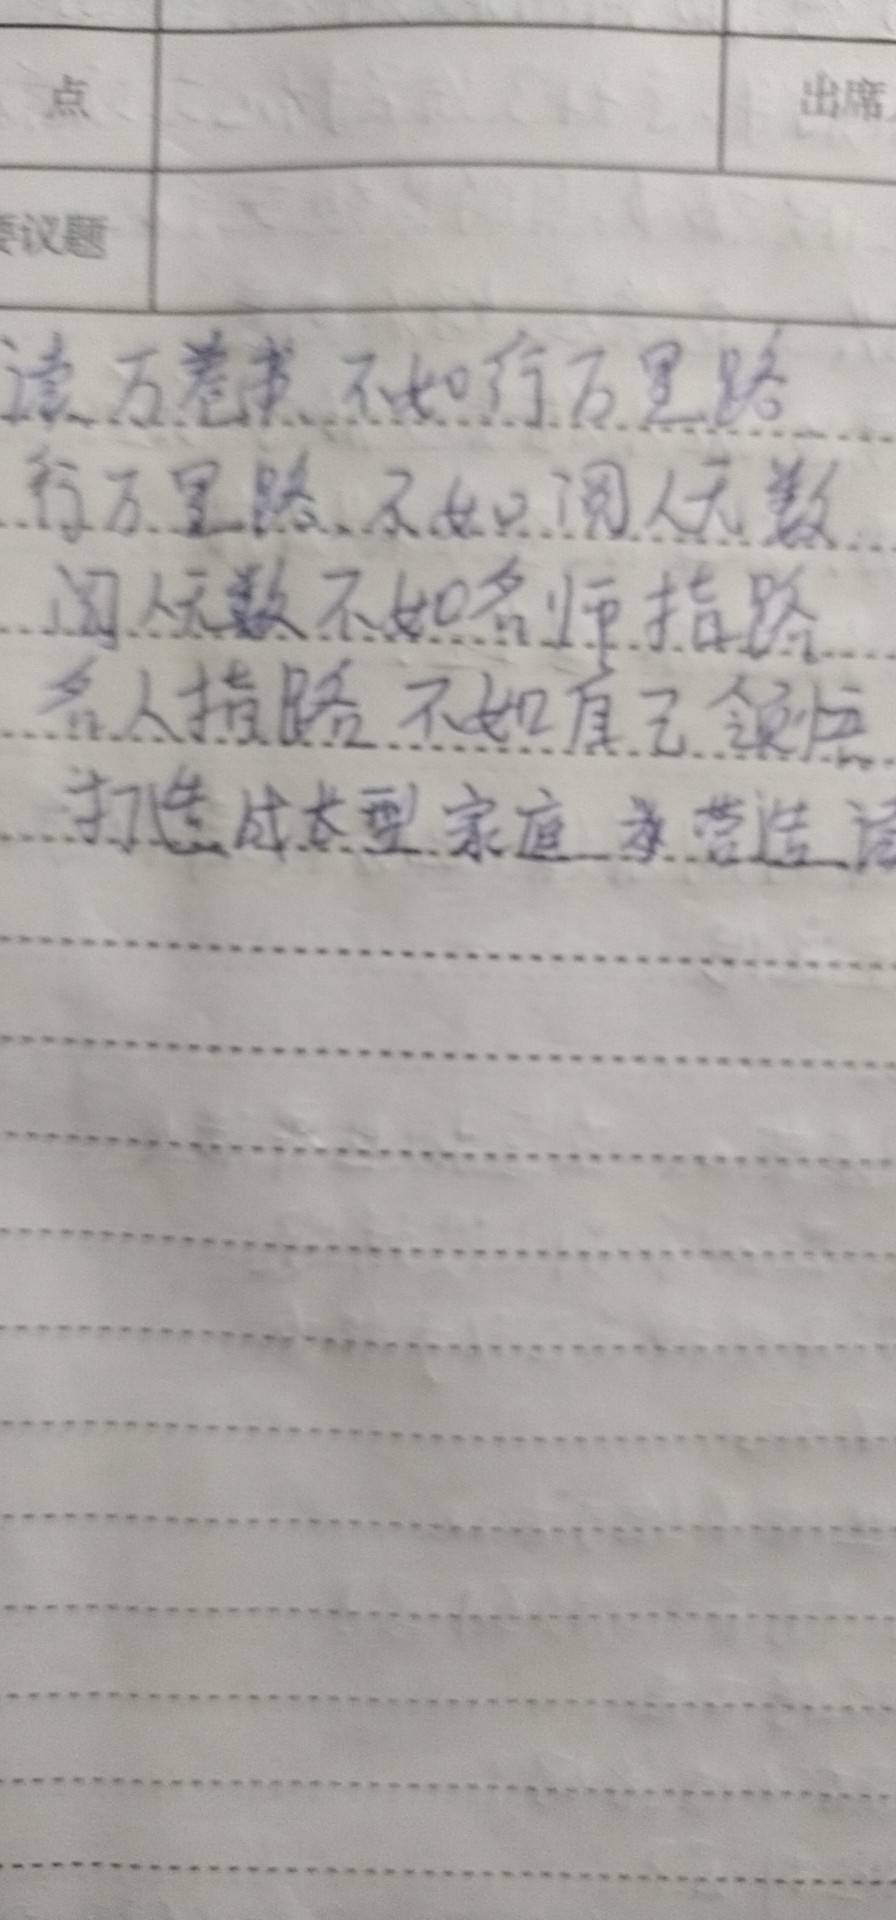 点 出席
要议题
读万卷书 不如行万里路
行万里路 不如阅人无数
阅人无数不如名师指路
名人指路 不如真己领悟
打造成长型家庭 营造